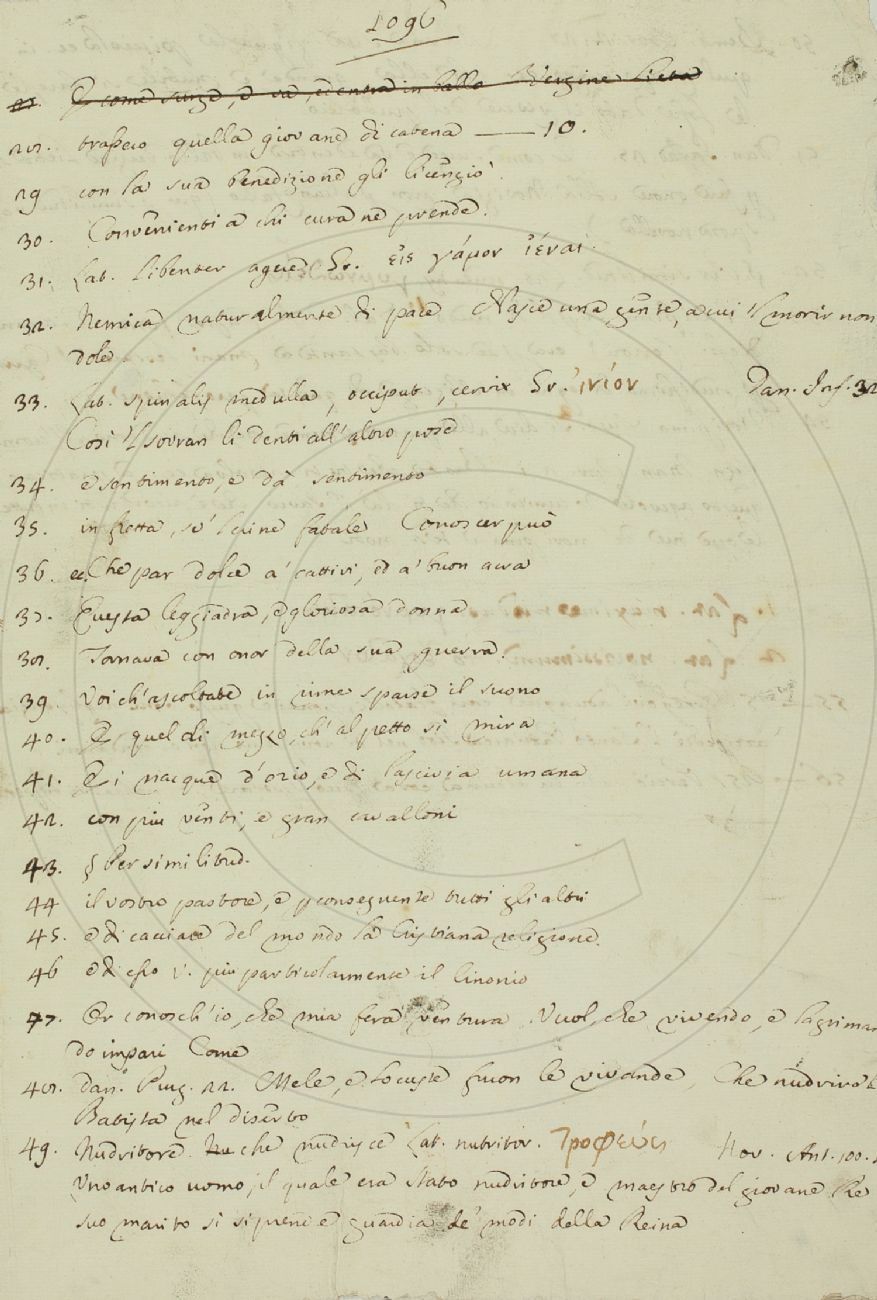 1096
E come surge, e va, ed entra in ballo Vergine lieta
28. trafisso quella giovane di catena —— 10.
29 con la sua benedizione gli licenziò.
30. Convenienti a chi cura ne prende.
31. Lat. libenter agere Gr. εἰς γάμον ἰέναι.
32. Nemica naturalmente di pace Nasce una gente, a cui 'l morir non
dole
33. Lat. spinalis medulla, occiput, cervix Gr. ἰνίον Dan. Inf. 32
Così 'l sovran li denti all'altro pose
34. e sentimento, e dà sentimento
35. in fretta, se'l crine fatale Conoscer può
36. ec. Che par dolce a' cattivi, ed a' buon acra
37. Questa leggiadra, e gloriosa donna
38. Tornava con onor della sua guerra.
39. Voi ch'ascoltate in rime sparse il suono
40. E quel di mezzo, ch'al petto si mira
41. Ei nacque d'ozio, e di lascivia umana
42. con più venti, e gran cavalloni
43. § Per similitud.
44 il vostro pastore, e pconseguente tutti gli altri
45. e di cacciare del mondo la Cristiana religione.
46 e di esso v. più particolarmente il
47. Or conosch'io, che mia fera ventura Vuol, che vivendo, e lagriman
do impari Come
48. Dan. Purg. 22. Mele, e locuste furon le vivande, Che nudriro
Batista nel diserto
49. Nudritore. che nudrisce Lat. nutritor. Τροφεύς Nov. Ant. 100.
Uno antico uomo, il quale era stato nudritore, e maestro del giovane Re
suo marito si si prende guardia de' modi della Reina